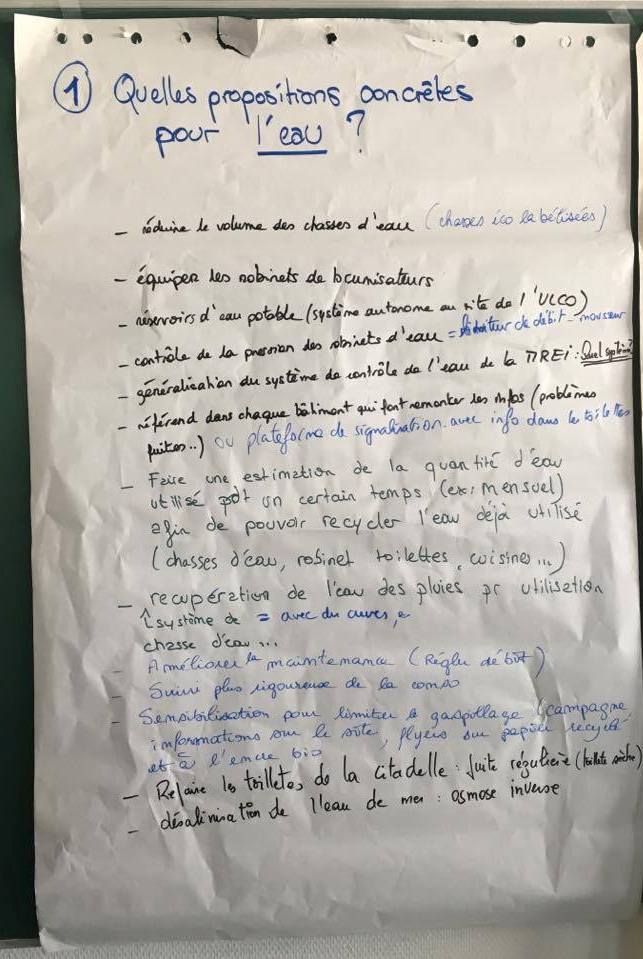 ① Quelles propositions concrètes
pour l'eau ?
- réduire le volume des chasses d'eau (chasses éco labélisées)
- équiper les robinets de économisateurs
- réservoirs d'eau potable (système autonome au site de l'ULCO)
- contrôle de la pression des robinets d'eau = limitateur de débit - mousseur
- généralisation du système de contrôle de l'eau de la MREI : Quel système?
- référend dans chaque bâtiment qui font remonter les infos (problèmes
fuites..) ou plateforme de signalisation avec info dans les toilettes
- Faire une estimation de la quantité d'eau
utilisé pdt un certain temps (ex: mensuel)
afin de pouvoir recycler l'eau déjà utilisé
(chasses d'eau, robinet toilettes, cuisines...)
- recupération de l'eau des pluies pr utilisation
système de = avec du cuves,
chasse d'eau...
- Améliorer la maintenance (Régler débit)
- Suivi plus rigoureuse de la conso
- Sensibilisation pour limiter le gaspillage (campagne
informations sur le site, flyers sur papier recyclé
et à l'encre bio
- Refaire les toilettes de la citadelle : fuite régulière (toilette sèche)
- désalinisation de l'eau de mer : osmose inverse